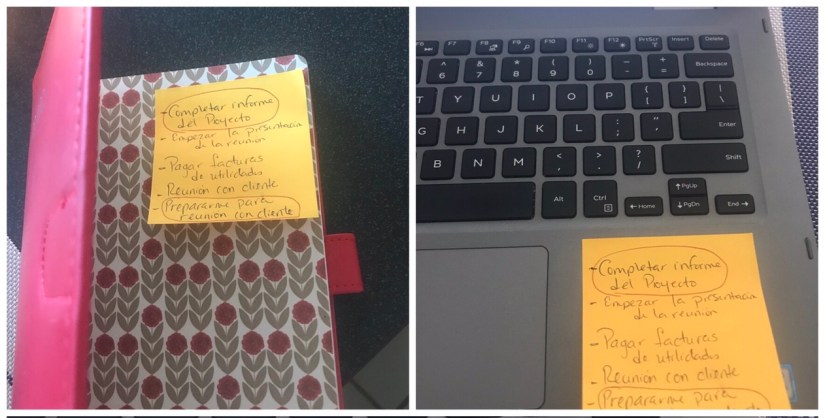 - Completar informe
del Proyecto
- Empezar la presentación
de la reunión
- Pagar facturas
de utilidades
- Reunión con cliente
- Prepararme para
reunión con cliente
F7 F8 F9 F10 F11 F12 PrtScr Insert Delete
^ 6 & 7 * 8 ( 9 ) 0 _ - + = Backspace
T Y U I O P { [ } ] | \
G H J K L : ; " ' Enter
B N M < , > . ? / Shift
Alt Ctrl ↑PgUp
←Home ↓PgDn End→
- Completar informe
del Proyecto
- Empezar la presentación
de la reunión
- Pagar facturas
de utilidades
- Reunión con cliente
- Prepararme para